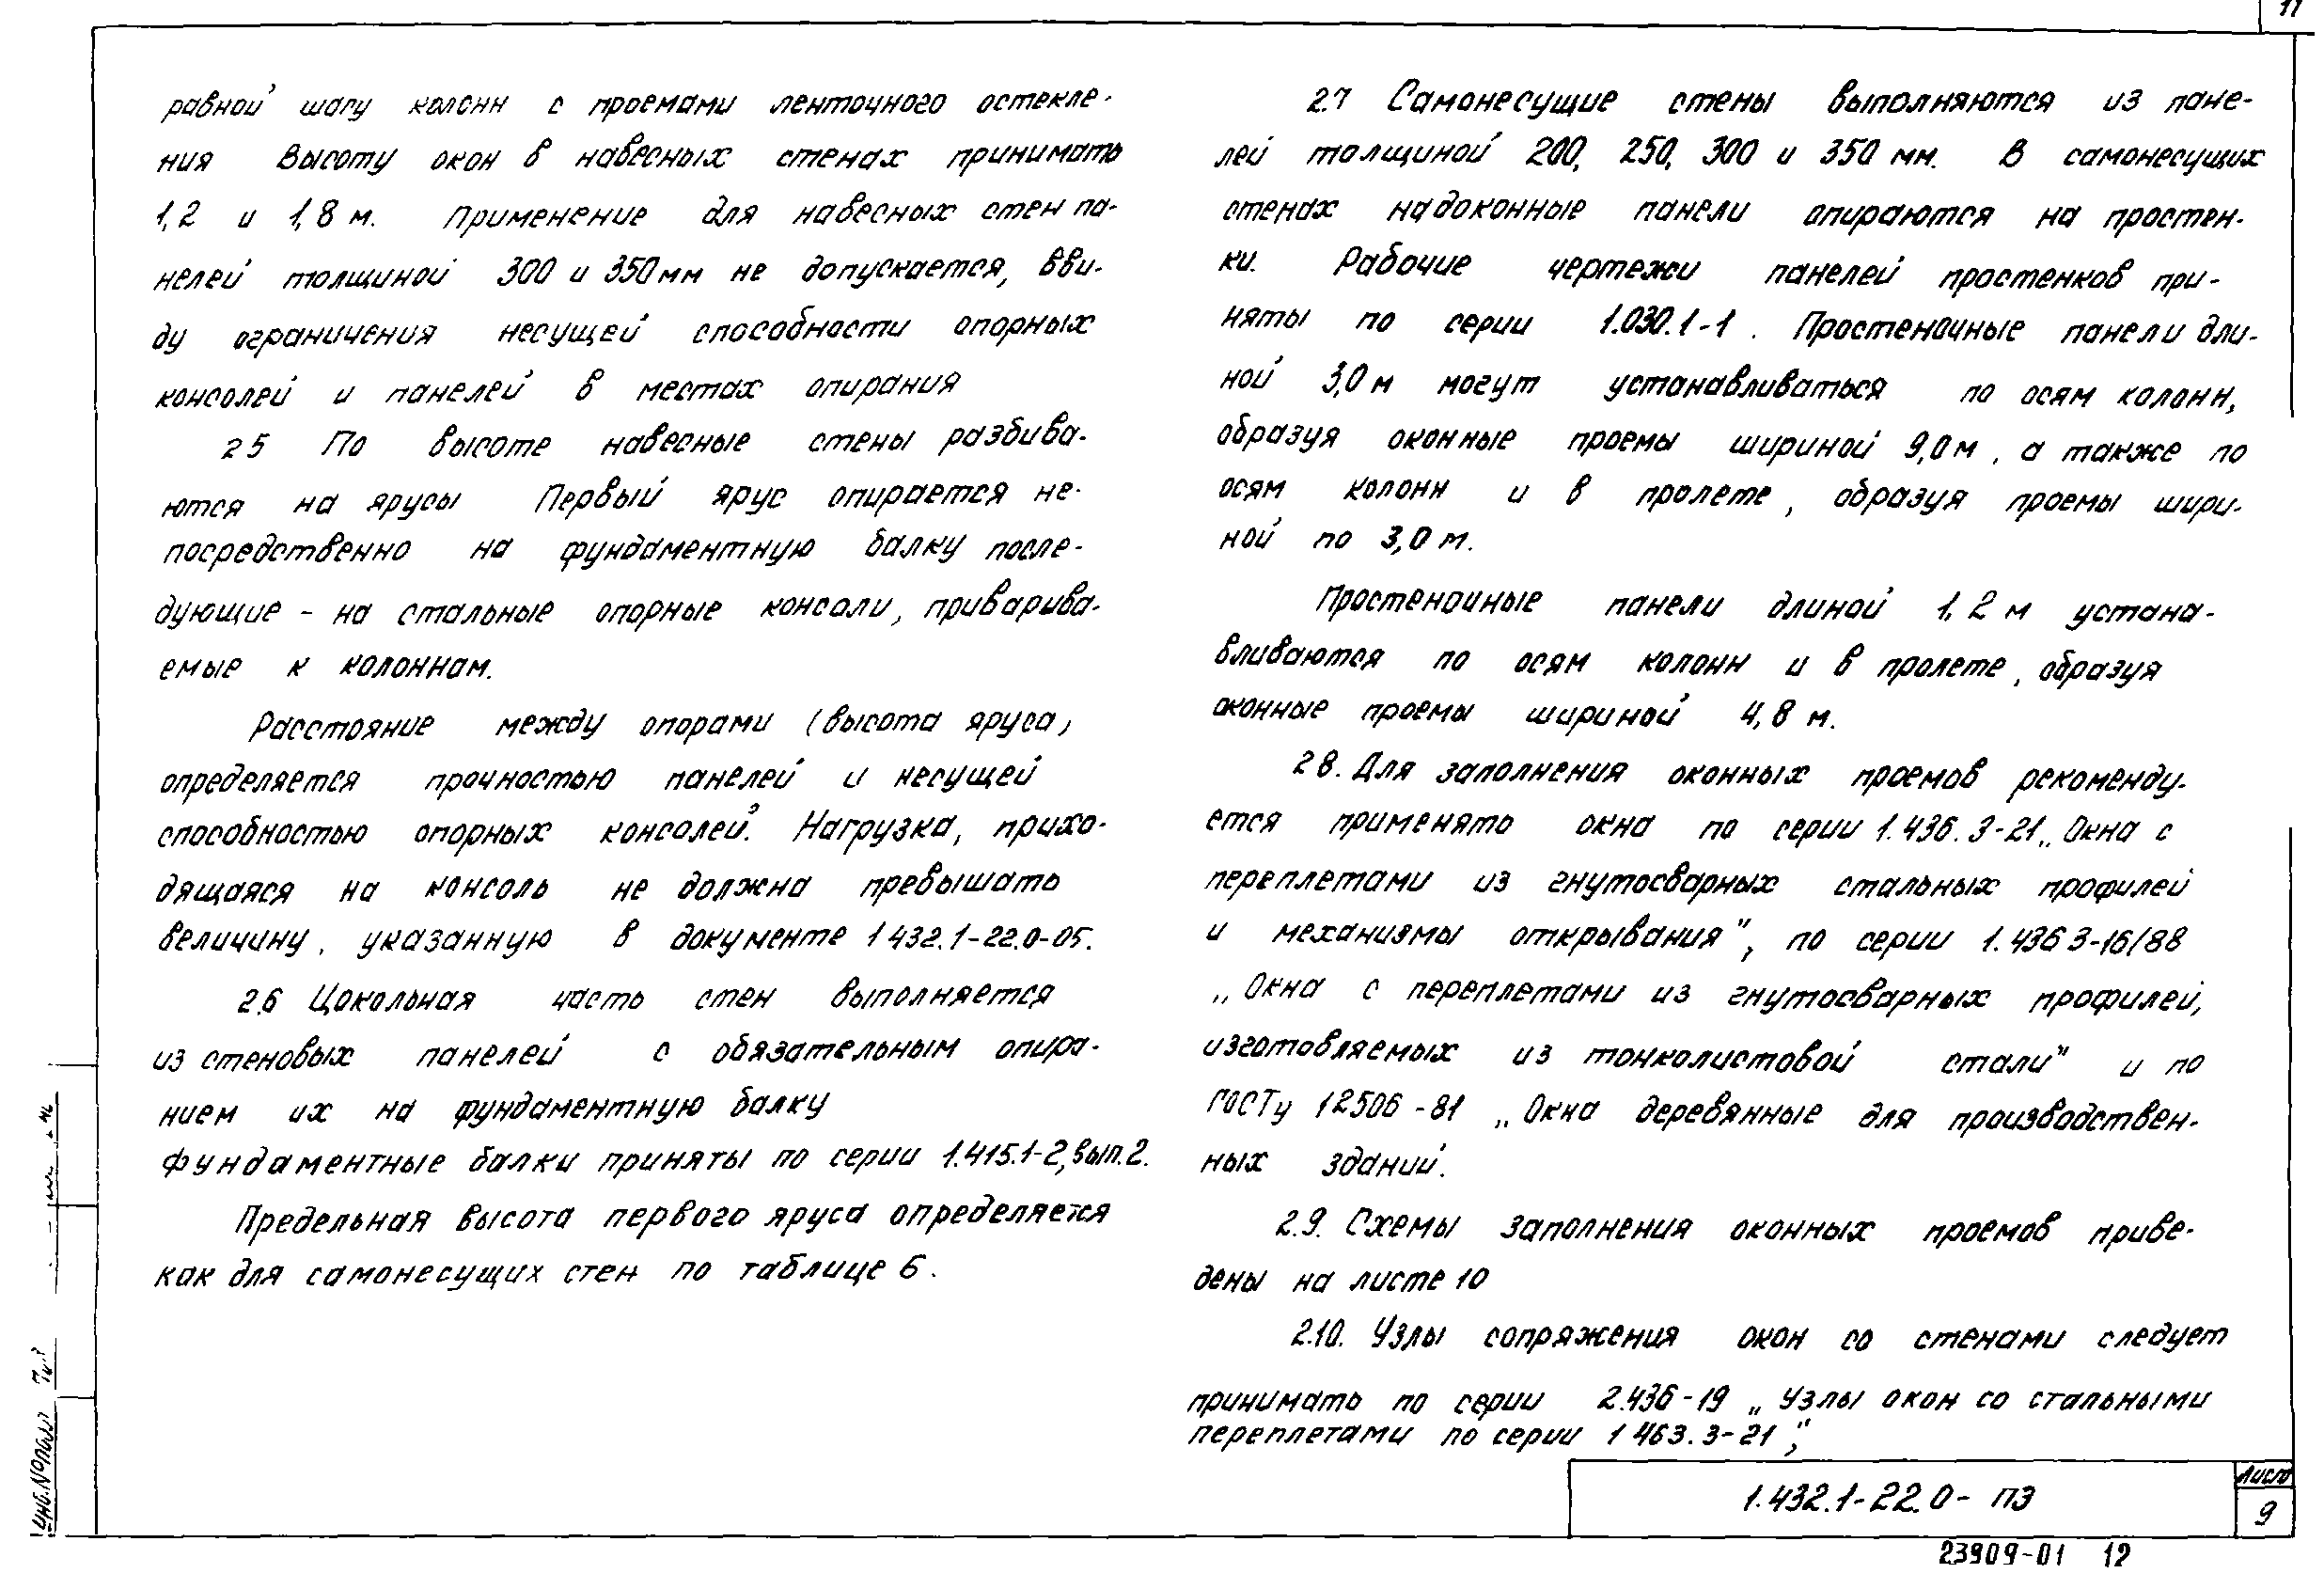 11
равной шагу колонн с проемами ленточного остекле-
ния Высоту окон в навесных стенах принимать
1,2 и 1,8 м. Применение для навесных стен па-
нелей толщиной 300 и 350 мм не допускается, вви-
ду ограничения несущей способности опорных
консолей и панелей в местах опирания
2 5 По высоте навесные стены разбива-
ются на ярусы Первый ярус опирается не-
посредственно на фундаментную балку после-
дующие - на стальные опорные консоли, приварива-
емые к колоннам.
Расстояние между опорами (высота яруса)
определяется прочностью панелей и несущей
способностью опорных консолей. Нагрузка, прихо-
дящаяся на консоль не должна превышать
величину, указанную в документе 1 432.1-22.0-05.
2.6 Цокольная часть стен выполняется
из стеновых панелей с обязательным опира-
нием их на фундаментную балку
Фундаментные балки приняты по серии 1.415.1-2, вып.2.
Предельная высота первого яруса определяется
как для самонесущих стен по таблице 6.
2.7 Самонесущие стены выполняются из пане-
лей толщиной 200, 250, 300 и 350 мм. В самонесущих
стенах надоконные панели опираются на простен-
ки. Рабочие чертежи панелей простенков при-
няты по серии 1.030.1-1. Простеночные панели дли-
ной 3,0 м могут устанавливаться по осям колонн,
образуя оконные проемы шириной 9,0 м, а также по
осям колонн и в пролете, образуя проемы шири-
ной по 3,0 м.
Простеночные панели длиной 1,2 м устана-
вливаются по осям колонн и в пролете, образуя
оконные проемы шириной 4,8 м.
2 8. Для заполнения оконных проемов рекоменду-
ется применять окна по серии 1.436.3-21 „Окна с
переплетами из гнутосварных стальных профилей
и механизмы открывания", по серии 1.436 3-16/88
„Окна с переплетами из гнутосварных профилей,
изготовляемых из тонколистовой стали" и по
ГОСТу 12506-81 „Окна деревянные для производствен-
ных зданий.
2.9. Схемы заполнения оконных проемов приве-
дены на листе 10
2.10. Узлы сопряжения окон со стенами следует
принимать по серии 2.436-19 „Узлы окон со стальными
переплетами по серии 1 463.3-21",
1.432.1-22.0-ПЗ
Лист
9
23909-01 12
Инв.№подл